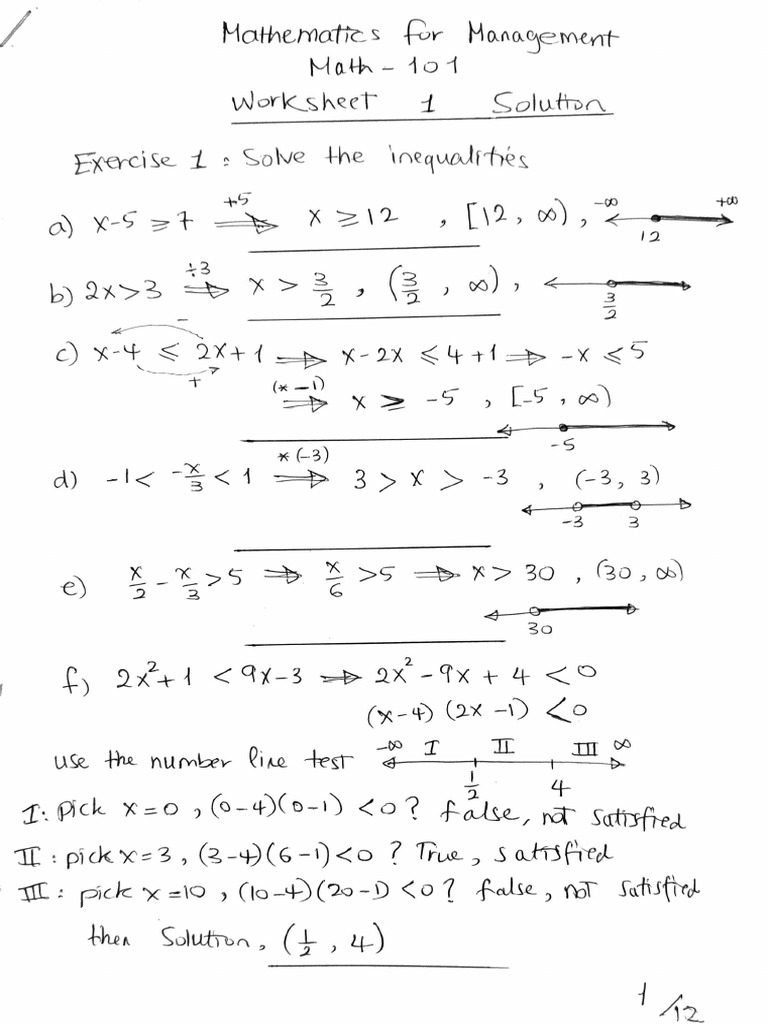 Mathematics for Management
Math - 101
Worksheet 1 Solution
Exercise 1 : Solve the inequalities
a) x-5 ≥ 7 ⟹ (+5) x ≥ 12 , [12, ∞) , -∞ 12 +∞
b) 2x>3 ⟹ (÷3) x > 3/2 , (3/2 , ∞) , 3/2
c) x-4 ≤ 2x+1 ⟹ x-2x ≤ 4+1 ⟹ -x ≤ 5
- +
⟹ (* -1) x ≥ -5 , [-5, ∞)
-5
d) -1 < -x/3 < 1 ⟹ *(-3) 3 > x > -3 , (-3, 3)
-3 3
e) x/2 - x/3 > 5 ⟹ x/6 > 5 ⟹ x > 30 , (30, ∞)
30
f) 2x²+1 < 9x-3 ⟹ 2x² - 9x + 4 < 0
(x-4) (2x-1) < 0
use the number line test -∞ I II III ∞
1/2 4
I: pick x=0 , (0-4)(0-1) <0 ? false, not satisfied
II : pick x=3 , (3-4)(6-1)<0 ? True, satisfied
III : pick x=10 , (10-4)(20-1) <0 ? false, not satisfied
then Solution, (1/2 , 4)
1/12